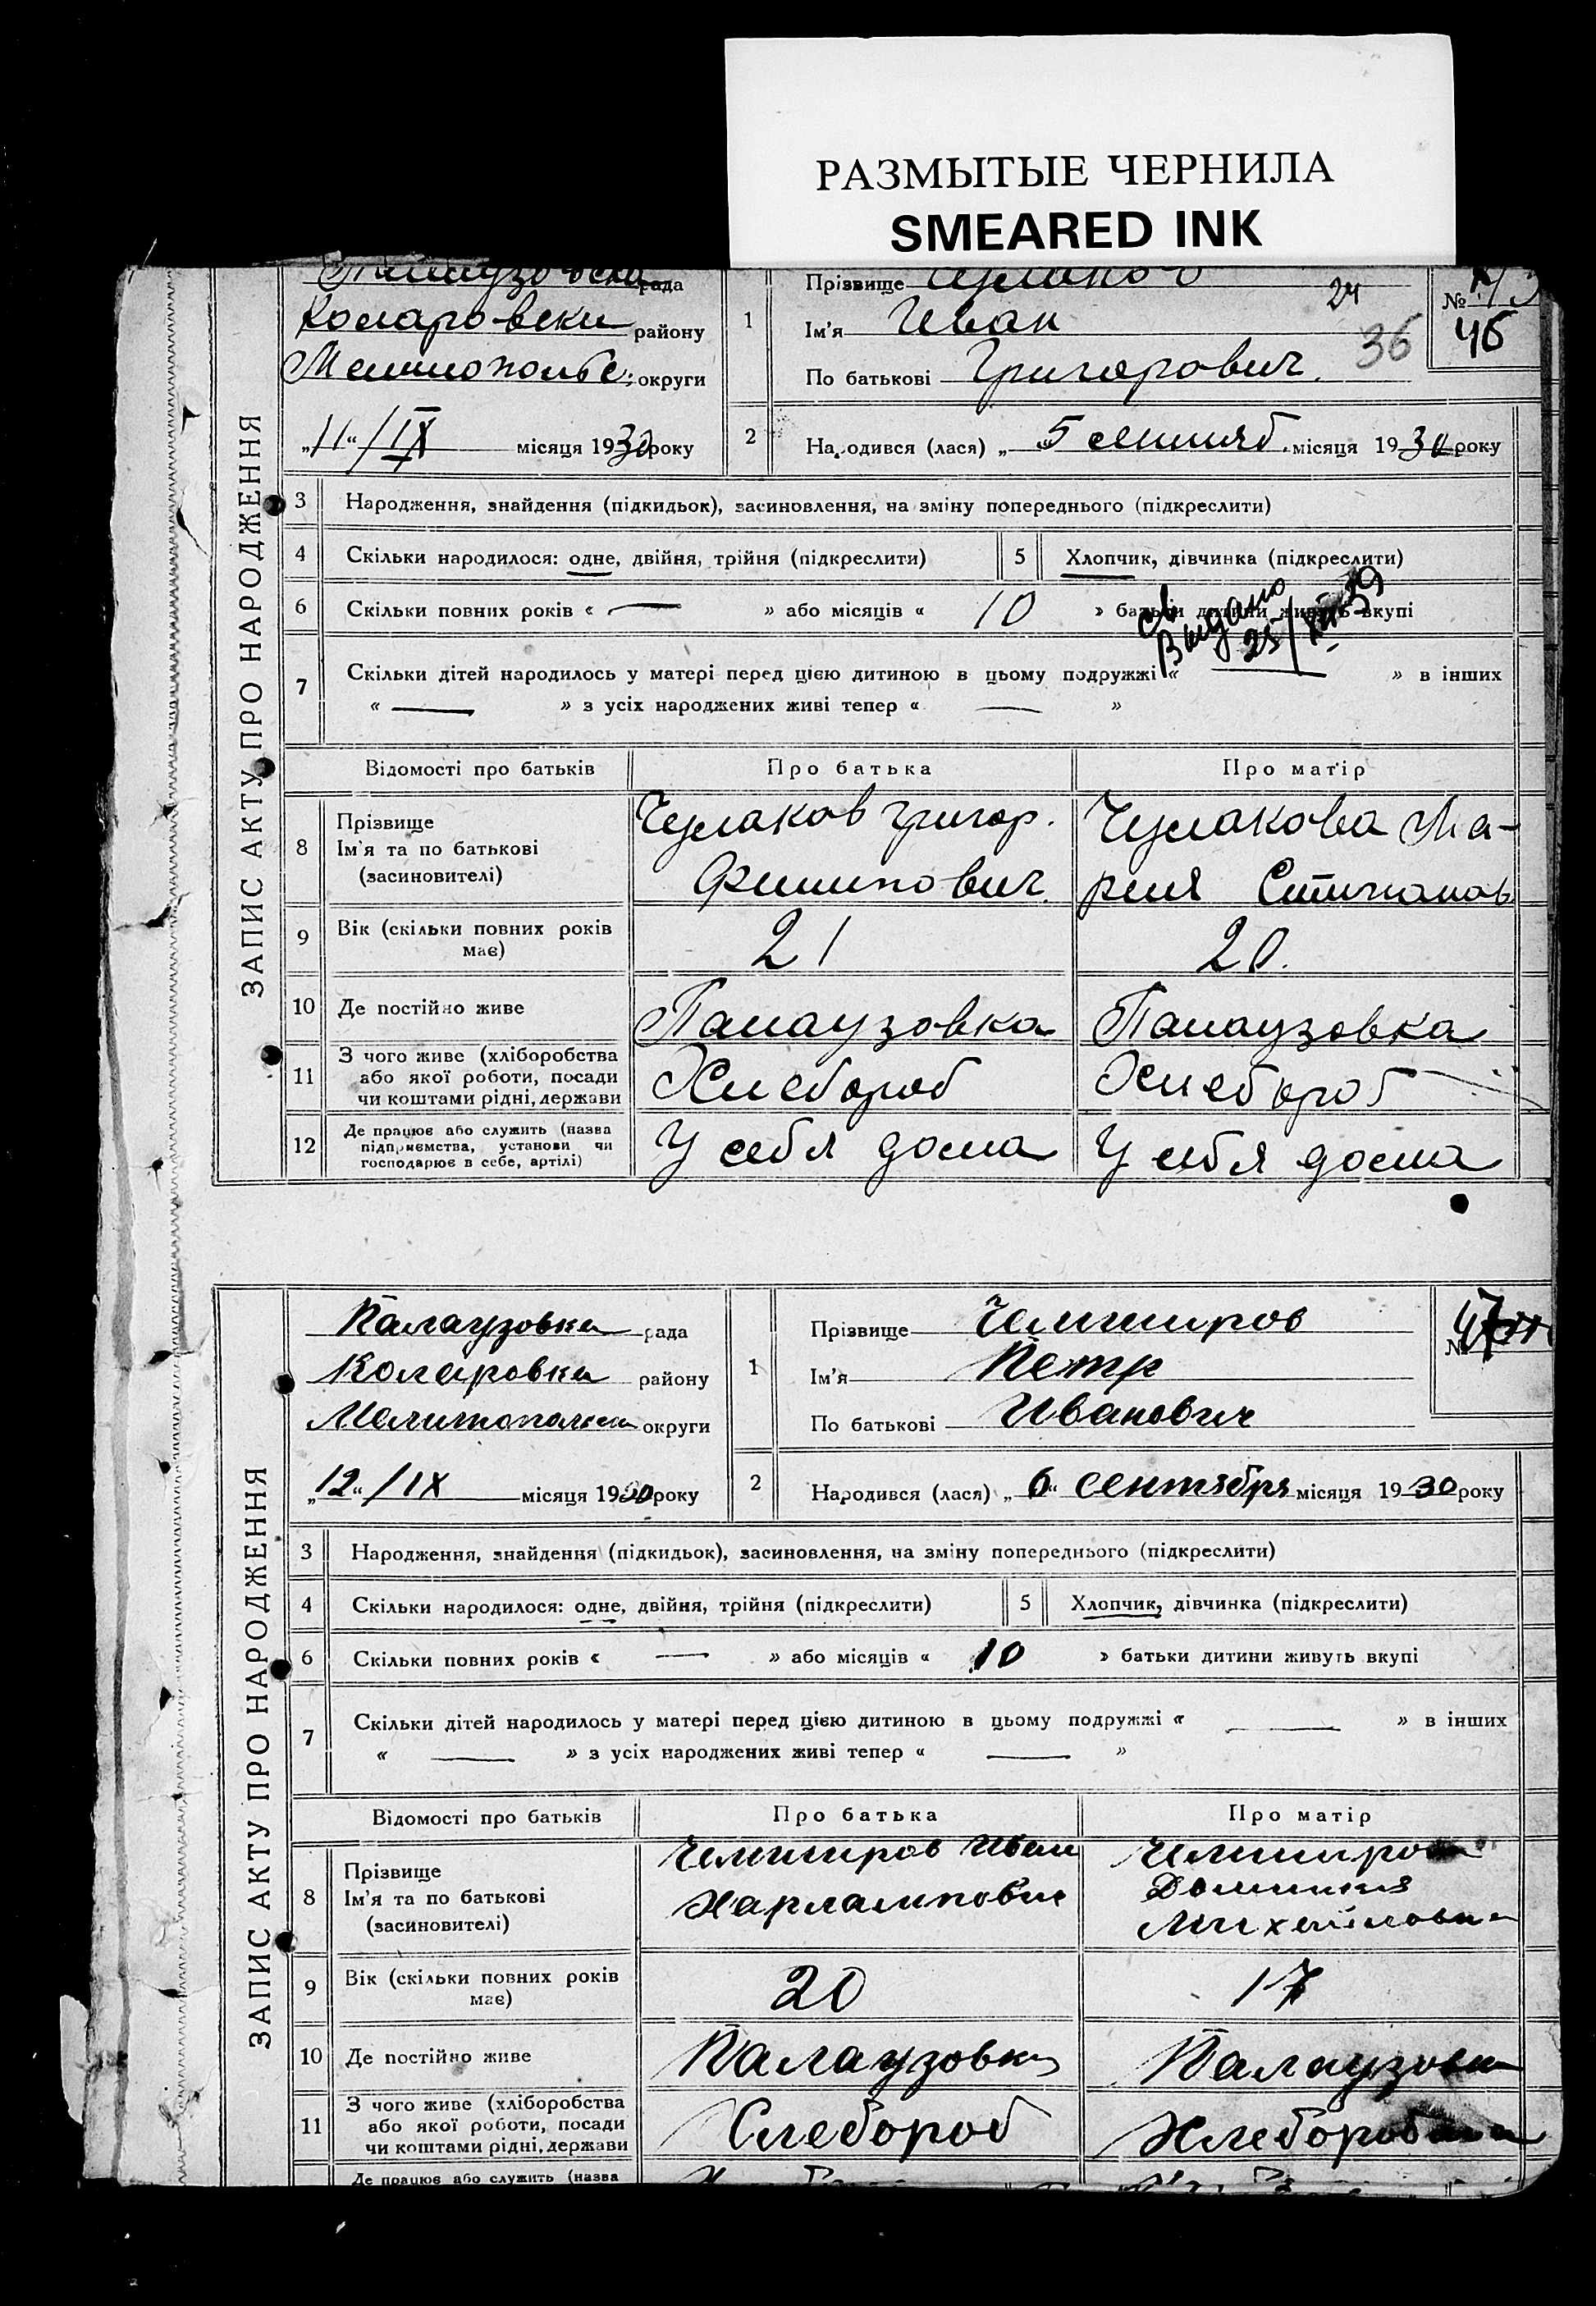 РАЗМЫТЫЕ ЧЕРНИЛА
SMEARED INK
ЗАПИС АКТУ ПРО НАРОДЖЕННЯ
рада
Коларовски району
округи
„11“/IX місяця 1930 року
1
Прізвище
Ім'я Иван
По батькові Григорович.
24
36
№
46
2
Народився (лася) „5 сентяб. місяця 1930 року
3 Народження, знайдення (підкидьок), засиновлення, на зміну попереднього (підкреслити)
4 Скільки народилося: одне, двійня, трійня (підкреслити)
5 Хлопчик, дівчинка (підкреслити)
6 Скільки повних років « — » або місяців « 10 » батьки дитини живуть вкупі
св
Выдано
25/XII-39
7 Скільки дітей народилось у матері перед цією дитиною в цьому подружжі « — » в інших
« — » з усіх народжених живі тепер « — »
Відомості про батьків Про батька Про матір
8
Прізвище
Ім'я та по батькові
(засиновителі)
Чулаков Григор.
Филипович.
Чулакова Ма-
рия
9 Вік (скільки повних років
має)
21
20.
10 Де постійно живе
Палаузовка
Палаузовка
11
З чого живе (хліборобства
або якої роботи, посади
чи коштами рідні, держави
Хлебороб
Хлебороб
12
Де працює або служить (назва
підприємства, установи чи
господарює в себе, артілі)
У себя дома
У себя дома
ЗАПИС АКТУ ПРО НАРОДЖЕННЯ
Палаузовка рада
Коларовка району
округи
„12“/IX місяця 1930 року
1
Прізвище Чемширов
Ім'я Петр
По батькові Иванович
№ 47
2
Народився (лася) „6“ сентября місяця 1930 року
3 Народження, знайдення (підкидьок), засиновлення, на зміну попереднього (підкреслити)
4 Скільки народилося: одне, двійня, трійня (підкреслити)
5 Хлопчик, дівчинка (підкреслити)
6 Скільки повних років « — » або місяців « 10 » батьки дитини живуть вкупі
7 Скільки дітей народилось у матері перед цією дитиною в цьому подружжі « — » в інших
« — » з усіх народжених живі тепер « — »
Відомості про батьків Про батька Про матір
8
Прізвище
Ім'я та по батькові
(засиновителі)
Чемширов Иван
Харлампович
Михайловна
9 Вік (скільки повних років
має)
20
17
10 Де постійно живе
Палаузовка
Палаузовка
11
З чого живе (хліборобства
або якої роботи, посади
чи коштами рідні, держави
Хлебороб
Де працює або служить (назва